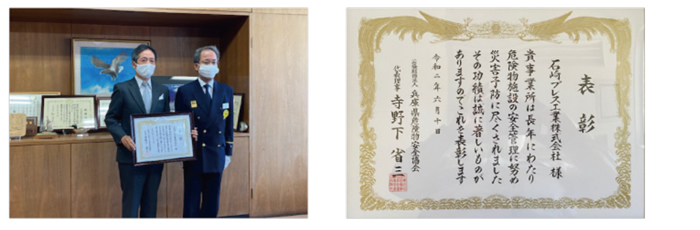 表彰
石崎プレス工業株式会社 様
貴事業所は長年にわたり
危険物施設の安全管理に努め
災害予防に尽くされました
その功績は誠に著しいものが
ありますのでこれを表彰します
令和二年六月十日
兵庫県危険物安全協会
代表理事 寺野下 省三